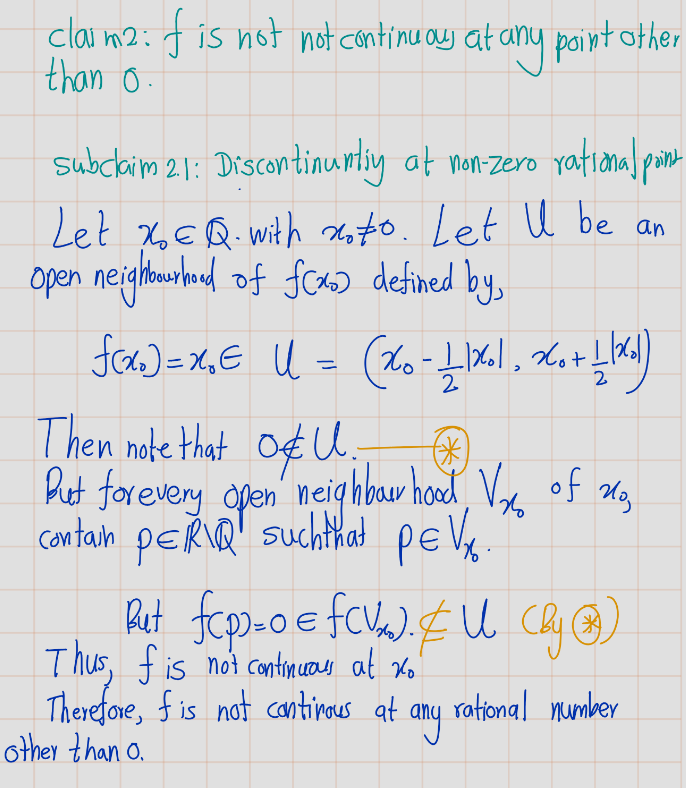 claim2: f is not not continuous at any point other
than 0.
subclaim 2.1: Discontinuntiy at non-zero rational point
Let x₀ ∈ ℚ. with x₀ ≠ 0. Let U be an
open neighbourhood of f(x₀) defined by,
f(x₀) = x₀ ∈ U = (x₀ - 1/2 |x₀|, x₀ + 1/2 |x₀|)
Then note that 0 ∉ U. ⊛
But for every open neighbourhood V_{x₀} of x₀,
contain p ∈ ℝ\ℚ such that p ∈ V_{x₀}.
But f(p) = 0 ∈ f(V_{x₀}). ⊄ U (By ⊛)
Thus, f is not continuous at x₀
Therefore, f is not continous at any rational number
other than 0.